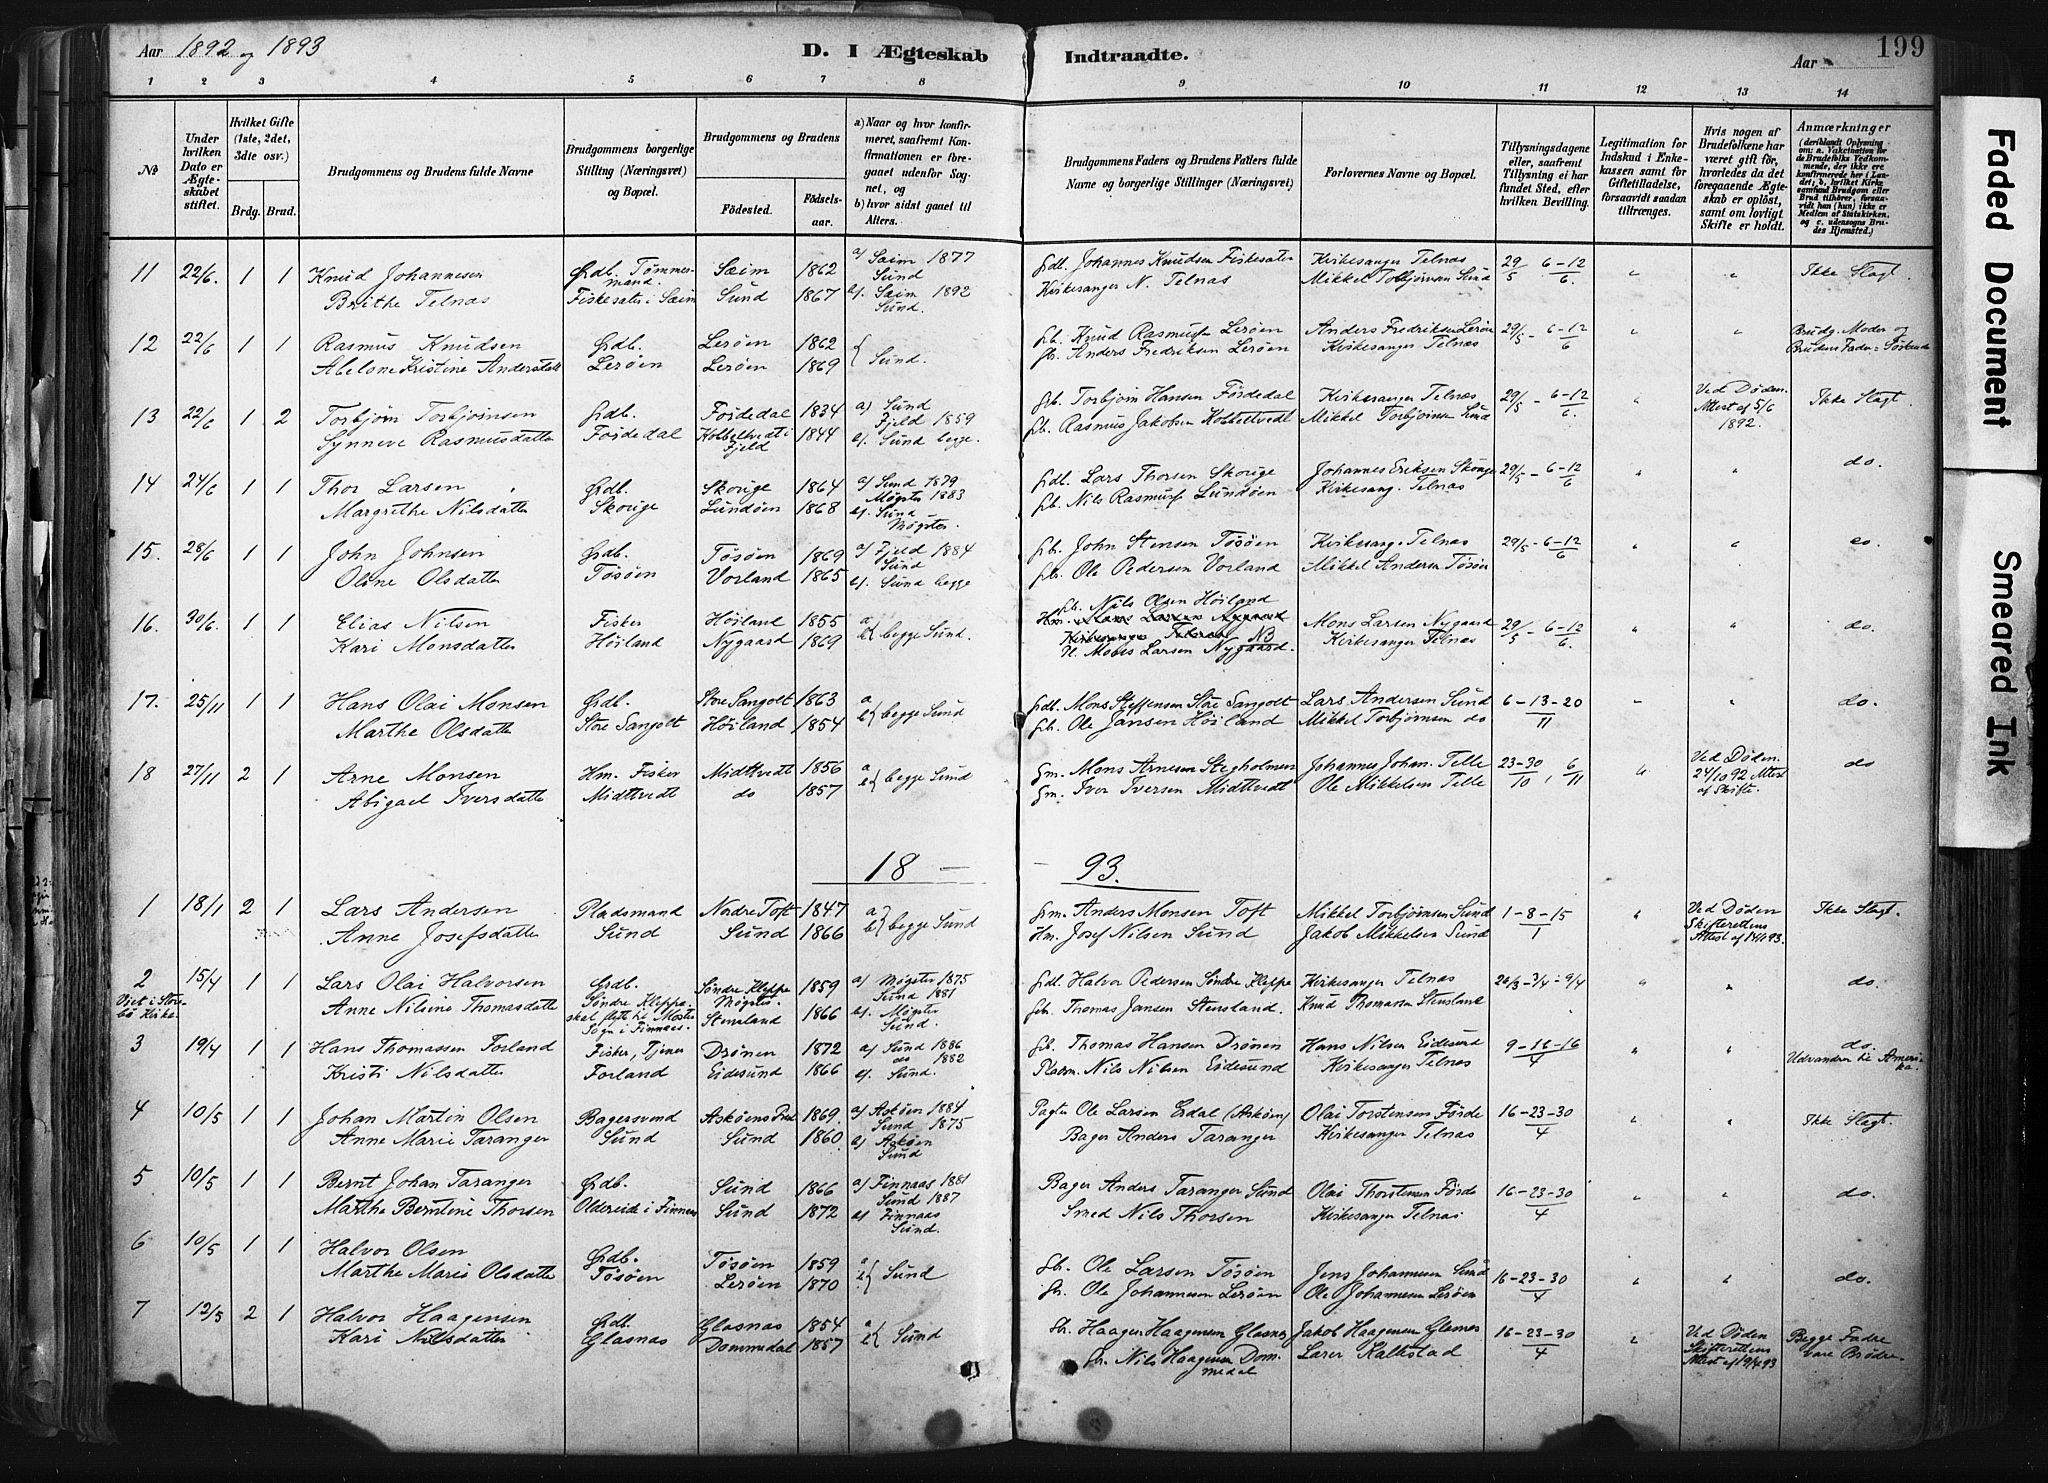 Aar 1892 og 1893
D. I Ægteskab Indtraadte.
Aar
199
1 2 3 4 5 6 7 8 9 10 11 12 13 14
No
Under hvilken Dato er Ægteskabet stiftet.
Hvilket Gifte (1ste, 2det, 3die osv.)
Brdg. Brud.
Brudgommens og Brudens fulde Navne
Brudgommens borgerlige Stilling (Næringsvei) og Bopæl.
Brudgommens og Brudens
Fødested. Fødselsaar.
a) Naar og hvor konfirmeret, saafremt Konfirmationen er foregaaet udenfor Sognet, og b) hvor sidst gaaet til Alters.
Brudgommens Faders og Brudens Faders fulde Navne og borgerlige Stillinger (Næringsvei)
Forlovernes Navne og Bopæl.
Tillysningsdagene eller, saafremt Tillysning ei har fundet Sted, efter hvilken Bevilling.
Legitimation for Indskud i Enkekassen samt for Giftetilladelse, forsaavidt saadan tiltrænges.
Hvis nogen af Brudefolkene har været gift før, hvorledes da det foregaaende Ægteskab er opløst, samt om lovligt Skifte er holdt.
Anmærkninger (deriblandt Oplysning om: a. Vakcination for de Brudefolks Vedkommende, der ikke ere konfirmerede her i Landet; b. hvilket Kirkesamfund Brudgom eller Brud tilhører, forsaavidt han (hun) ikke er Medlem af Statskirken, og c. udensogns Brudes Hjemsted.)
11 22/6. 1 1 Knud Johannesen Grdb. Tømmermand. Sæim 1862 a/ Saim 1877 Sund Grdb. Johannes Knudsen Fiskesæter Kirkesanger Telnæs 29/5 6-12/6. " " Ikke Slagt
Brithe Telnæs Fiskesæter i Sæim Sund 1867 b/. Saim 1892 Sund. Kirkesanger N. Telnæs Mikkel Torbjørnsen Sund
12 22/6 1 1 Rasmus Knudsen Grdb. Lerøen 1862 Sund. Gb. Knud Rasmuss. Lerøen Anders Fredriksen Lerøen 29/5 - 6-12/6 " " Brudg. Moder og
Abelone Kristine Andersdatt Lerøen Lerøen 1869 Gb. Anders Fredriksen Lerøen Kirkesanger Telnæs Brudens Fader = Søskende
13 22/6 1 2 Torbjørn Torbjørnsen Grdb. Fosdedal 1834 a) Sund Fjeld 1859 Gb. Torbjørn Hansen Førdedal Kirkesanger Telnæs 29/5 - 6-12/6. " Ved Døden. Attest af 5/6 1892. Ikke Slagt.
Synneve Rasmusdatter Fosdedal Kobbeltvedt i Fjeld 1844 b/. Sund begge. Gb. Rasmus Jakobsen Kobbeltvedt Mikkel Torbjørnsen Sund
14 24/6 1 1 Thor Larsen Grdb. Skorige 1864 a/ Sund 1879 Møgster 1883 Grdb. Lars Thorsen Skorige Johannes Eriksen Skorige 29/5 - 6-12/6 " " do.
Margrethe Nilsdatter Skorige Lundøen 1868 b/. Sund Møgster. Gb. Nils Rasmuss. Lundøen Kirkesang. Telnæs
15. 28/6 1 1 John Johnsen Grdb. Tøsøen 1869 a/ Fjeld 1884 Sund Gb. John Stensen Tøsøen Kirkesange Telnæs 29/5 - 6-12/6 " " do.
Oline Olsdatter Tøsøen Vorland 1865 b/. Sund begge Gb. Ole Pedersen Vorland Mikkel Andersen Tøsøen
16. 30/6. 1 1 Elias Nilsen Fisker Høiland 1855 a b begge Sund. Gb. Nils Olsen Høiland Mons Larsen Nygaard 29/5 - 6-12/6. " " do.
Kari Monsdatter Høiland Nygaard 1869 H. Mons Larsen Nygaard. NB Kirkesanger Telnæs
17. 25/11 1 1 Hans Olai Monsen Grdb. Store Sangolt 1863 a b begge Sund Grdb. Mons Steffensen Store Sangolt Lars Andersen Sund 6-13-20/11 " " do.
Marthe Olsdatter Store Sangolt Høiland 1854 Gb. Ole Jansen Høiland Mikkel Torbjørnsen do
18 27/11 2 1 Arne Monsen Hm. Fisker Midttvedt 1856 a b begge Sund Gm. Mons Arnesen Stegholmen Johannes Johan. Telle 23-30/10, 6/11 " Ved Døden. 24/10 92 Attest af Skifte. do
Abigael Iversdatter Midttvedt do 1857 Gm. Iver Iversen Midttvedt Ole Mikkelsen Telle
18 — — 93.
1 18/1 2 1 Lars Andersen Pladsmand Nordre Toft 1847 a b begge Sund Grm. Anders Monsen Toft Mikkel Torbjørnsen Sund 1-8-15/1 " Ved Døden Skifterettens Attest af 14/1 93. Ikke Slagt.
Anne Josefsdatter Sund Sund 1866 Hm. Josef Nilsen Sund Jakob Mikkelsen Sund
2 15/4 1 1 Lars Olai Halvorsen Grdb. Søndre Kleppe Møgster. 1859 a) Møgster 1875 Sund 1881 Grdb. Halvor Pedersen Søndre Kleppe Kirkesanger Telnæs 26/3 - 3/4 - 9/4 " " do.
Viet i Storebø Kirke. Anne Nilsine Thomasdatter Søndre Kleppe. skal flytte til Moster Sogn i Finnaas. Stensland 1866 b/. Møgster Sund. Gb. Thomas Jansen Stensland. Knud Thomassen Stensland
3 19/4 1 1 Hans Thomassen Forland Fisker, Tjener Drønen 1872 a/ Sund 1886 do 1882 Gb. Thomas Hansen Drønen Hans Nilsen Eidesund 9-16-16/4 " " do.
Kristi Nilsdatter Forland Eidesund 1866 b/. Sund. Pladsm. Nils Nilsen Eidesund Kirkesanger Telnæs Udvandrer til Amerika.
4 10/5 1 1 Johan Martin Olsen Bagersvend Askøens Pred 1869. a/ Askøen 1884 Sund 1875 Pagter Ole Larsen Erdal (Askøen) Olai Torstensen Førde 16-23-30/4 " " Ikke Slagt.
Anne Marie Taranger Sund Sund 1860 b) Askøen Sund Bager Anders Taranger Kirkesanger Telnæs
5 10/5 1 1 Bernt Johan Taranger Grdb. Sund 1866 a) Finnaas 1881 Sund 1887 Bager Anders Taranger Sund Olai Thorstensen Førde 16-23-30/4 " " do.
Marthe Berntine Thorsen Oldereide i Finnaas Sund 1872 b) Finnaas Sund. Smed Nils Thorsen Kirkesanger Telnæs
6 10/5 1 1 Halvor Olsen Grdb. Tøsøen 1859 a b Sund Gb. Ole Larsen Tøsøen Jens Johannesen Sund 16-23-30/4 " " do.
Marthe Marie Olsdatter Tøsøen Lerøen 1870 Gb. Ole Johannesen Lerøen Ole Johannesen Lerøen
7 12/5 2 1 Halvor Haagensen Grdb. Glasnæs 1854 a b Sund Gb. Haagen Haagensen Glasnes Jakob Haagensen Glesnes 16-23-30/4 " Ved Døden Skifterettens Attest af 19/4 93 Begge Fædre vare Brødre.
Kari Nilsdatter Glasnæs Dommedal 1857 Gb. Nils Haagensen Dommedal Larer Kallestad
Faded Document
Smeared Ink